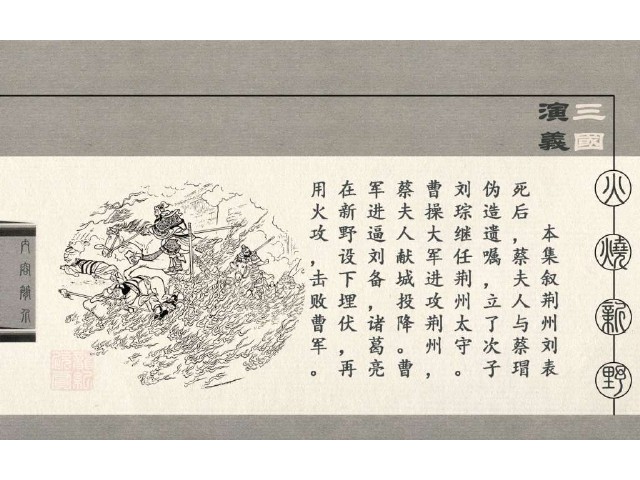 三國
演義
火燒新野
本集叙荆州刘表
死后，蔡夫人与蔡瑁
伪造遗嘱，立了次子
刘琮继任荆州太守。
曹操大军进攻荆州，
蔡夫人献城投降。曹
军进逼刘备，诸葛亮
在新野设下埋伏，再
用火攻，击败曹军。